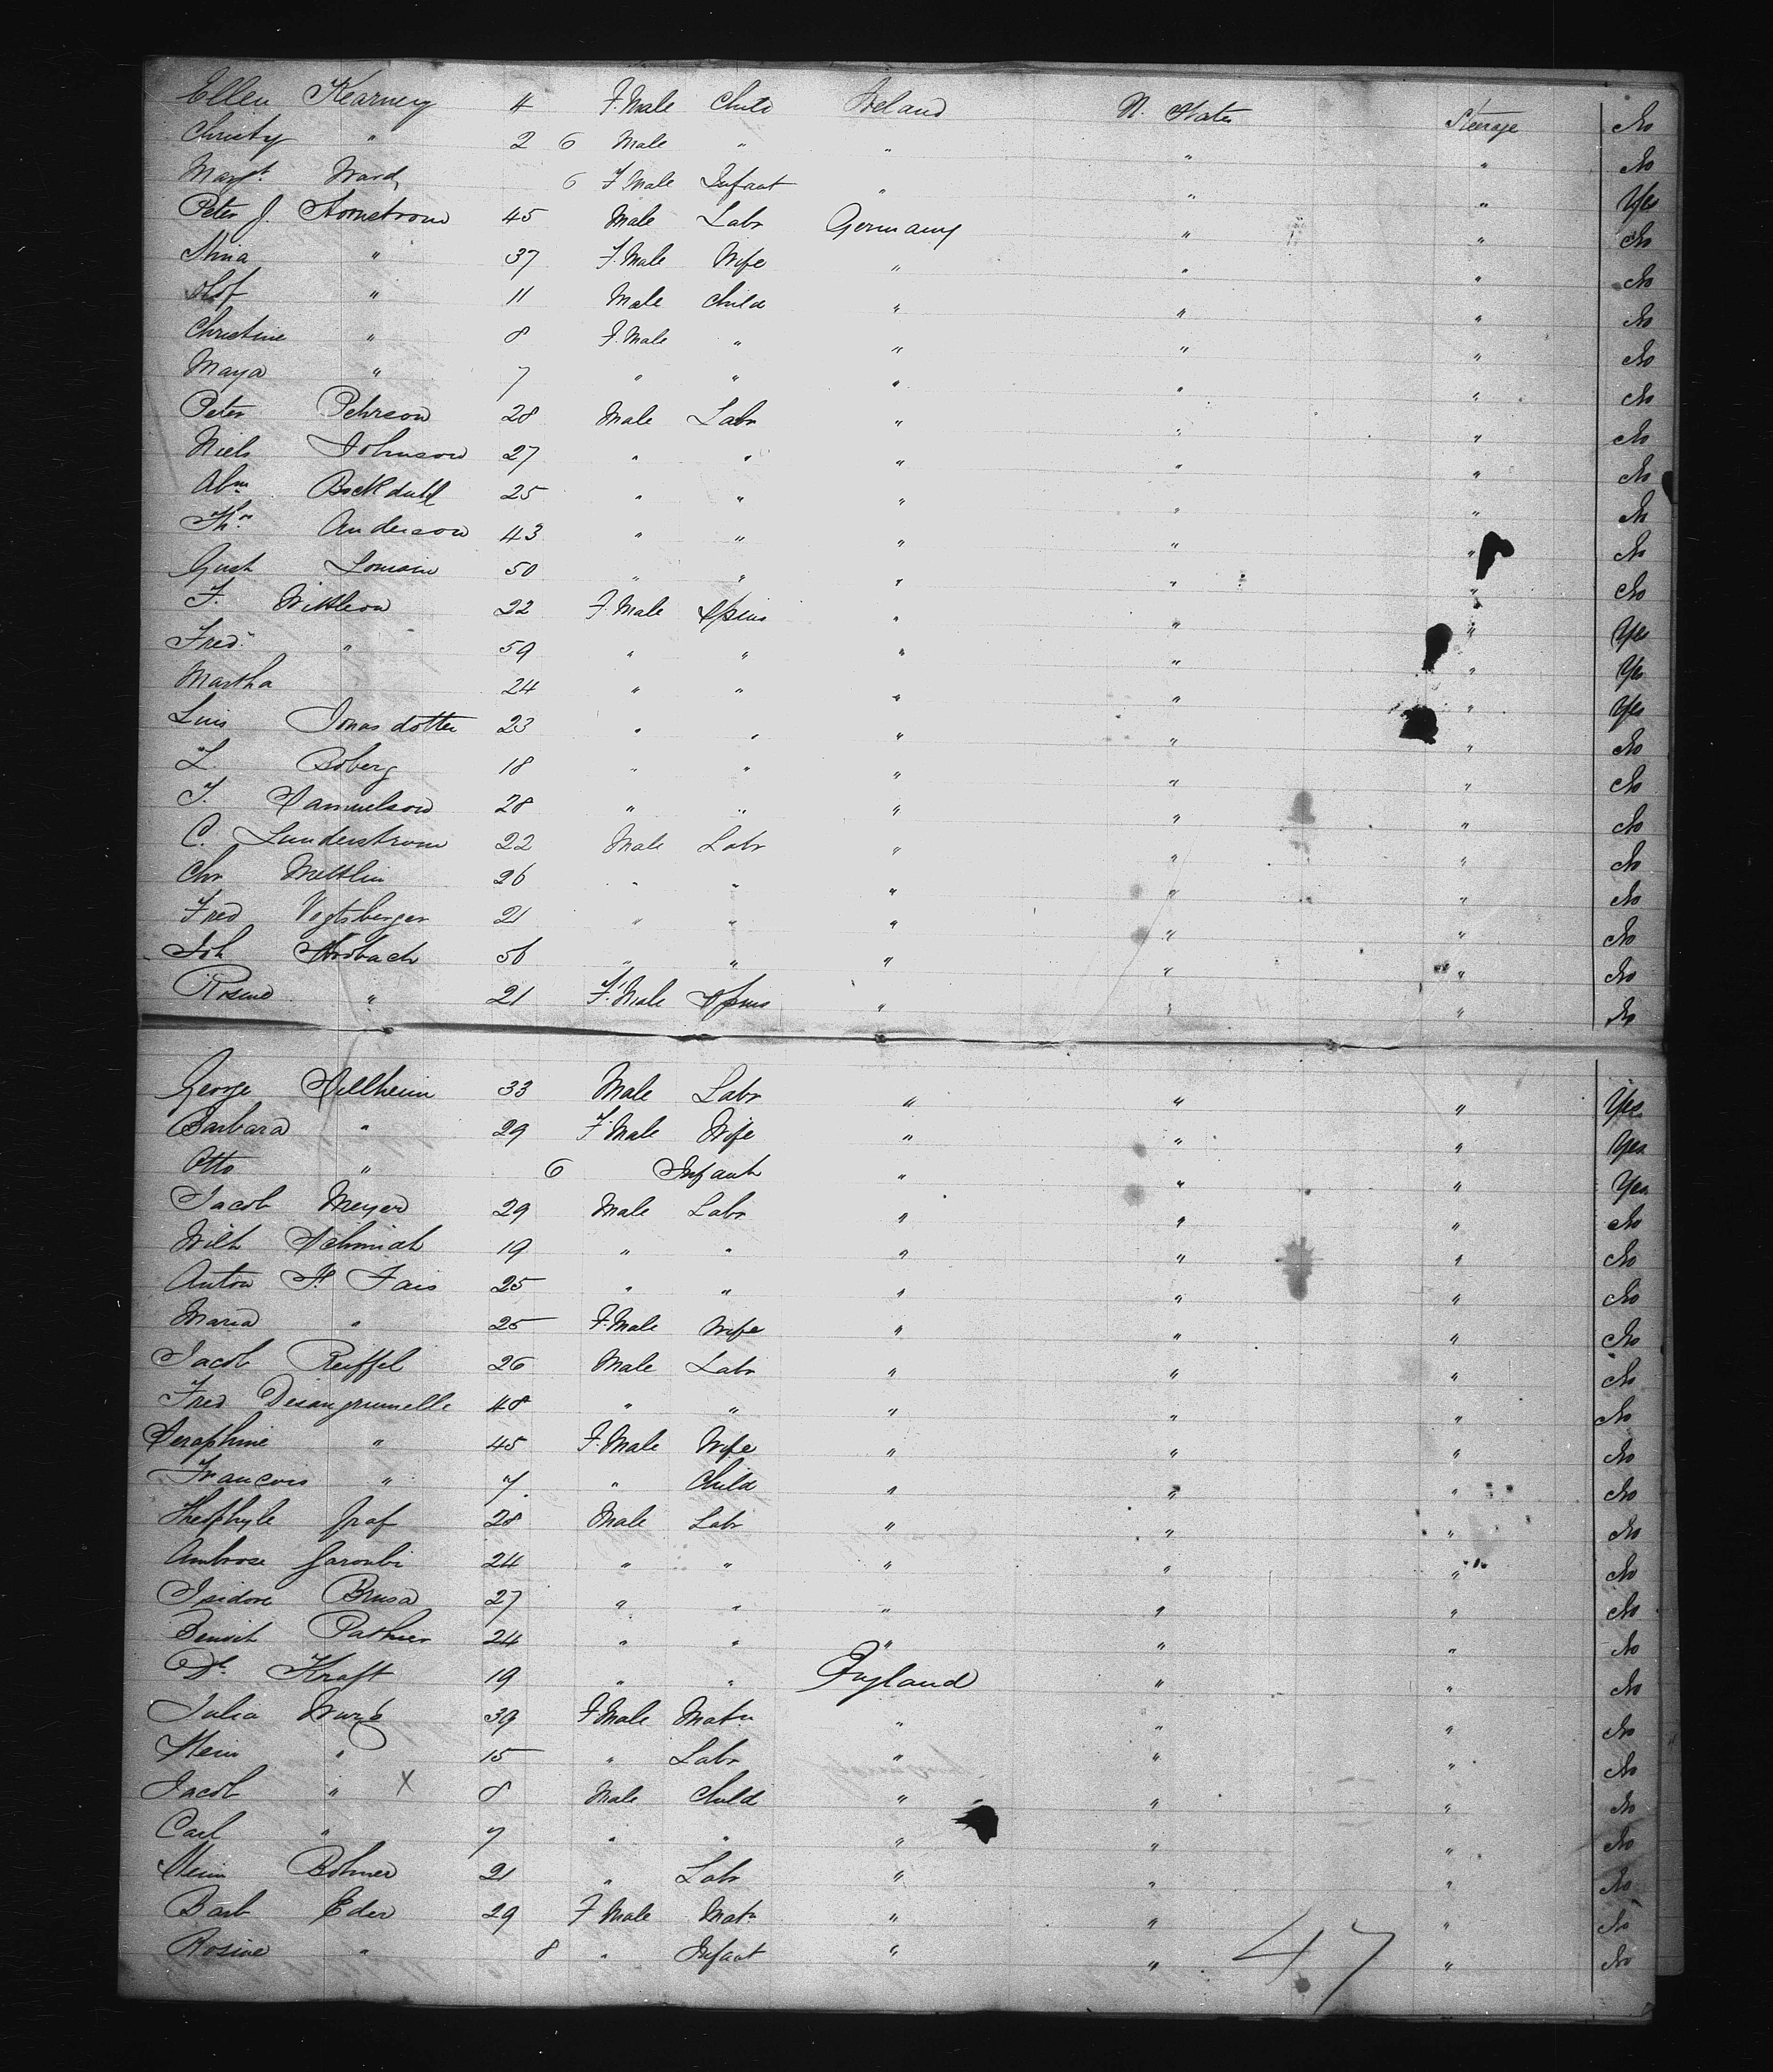 Ellen Kearney 4 F. Male Child Ireland U. States Steerage No
Christy " 2 6 Male " " " " No
Margt. Ward 6 F Male Infant " " " Yes
Peter J. Stornstrom 45 Male Labr Germany " " No
Stina " 37 F. Male Wife " " " No
Olof " 11 Male Child " " " No
Christine " 8 F. Male " " " " No
Maya " 7 " " " " " No
Peter Pehrson 28 Male Labr " " " No
Niels Johnson 27 " " " " " No
Abm. Bockdahl 25 " " " " " No
Ths. Anderson 43 " " " " " No
Gust 50 " " " " " No
F. 22 F. Male Spins " " " Yes
Fred. " 59 " " " " " Yes
Martha 24 " " " " " Yes
Luis Jonasdotter 23 " " " " " No
L. Boberg 18 " " " " " No
T. Samuelson 28 " " " " " No
C. Lunderstrom 22 Male Labr " " " No
Chr Mettlin 26 " " " " " No
Fred Vogtsberger 21 " " " " " No
Joh 56 " " " " " No
Rosine " 21 F. Male Spins " " " No
George Sellheim 33 Male Labr " " " Yes
Barbara " 29 F. Male Wife " " " Yes
Otto " 6 Infant " " " Yes
Jacob Meyer 29 Male Labr " " " No
Wilh Schmidt 19 " " " " " No
Anton St. Fais 25 " " " " " No
Maria " 25 F. Male Wife " " " No
Jacob Reiffel 26 Male Labr " " " No
Fred 48 " " " " " No
Seraphine " 45 F. Male Wife " " " No
Francois " 7 " Child " " " No
Theophyle Graf 28 Male Labr " " " No
Ambrose Garonbi 24 " " " " " No
Isidore Brusa 27 " " " " " No
Benoit Pathier 24 " " " " " No
Kraft 19 " " England " " No
Julia Wurb 39 F Male Matn " " " No
Hein " 15 " Labr " " " No
Jacob " X 8 Male Child " " " No
Carl " 7 " " " " " No
Hein Bohmer 21 " Labr " " " No
Barb Eder 29 F Male Matn " " " No
Rosine " 8 " Infant " " " No
47